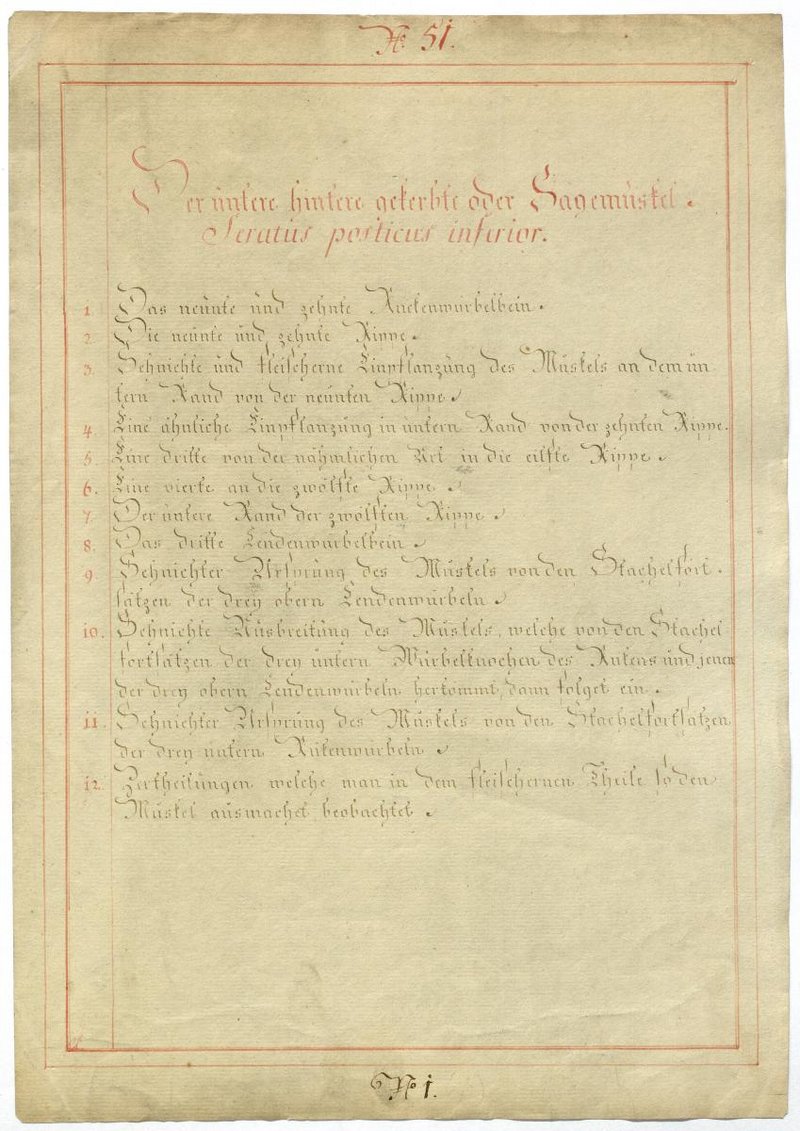 No 51.
Der untere hintere gekerbte oder Sagemuskel.
Seratus posticus inferior.
1. Das neunte und zehnte Ruckenwurbelbein.
2. Die neunte und zehnte Rippe.
3. Sehnichte und fleischerne Einpflanzung des Muskels an dem un
tern Rand von der neunten Rippe.
4. Eine ähnliche Einpflanzung in untern Rand von der zehnten Rippe.
5. Eine dritte von der nähmlichen Art in die eilfte Rippe.
6. Eine vierte an die zwölfte Rippe.
7. Der untere Rand der zwölften Rippe.
8. Das dritte Lendenwurbelbein.
9. Sehnichter Ursprung des Muskels von den Stachelfort.
satzen der drey obern Lendenwurbeln.
10. Sehnichte Ausbreitung des Muskels, welche von den Stachel
fortsatzen der drey untern Wurbelknochen des Rukens und jenen
der drey obern Lendenwurbeln herkommt, dann folget ein.
11. Sehnichter Ursprung des Muskels von den Stachelfortsatzen
der drey untern Rukenwurbeln.
12. Zertheilungen welche man in dem fleischernen Theile so den
Muskel ausmachet, beobachtet.
No 1.